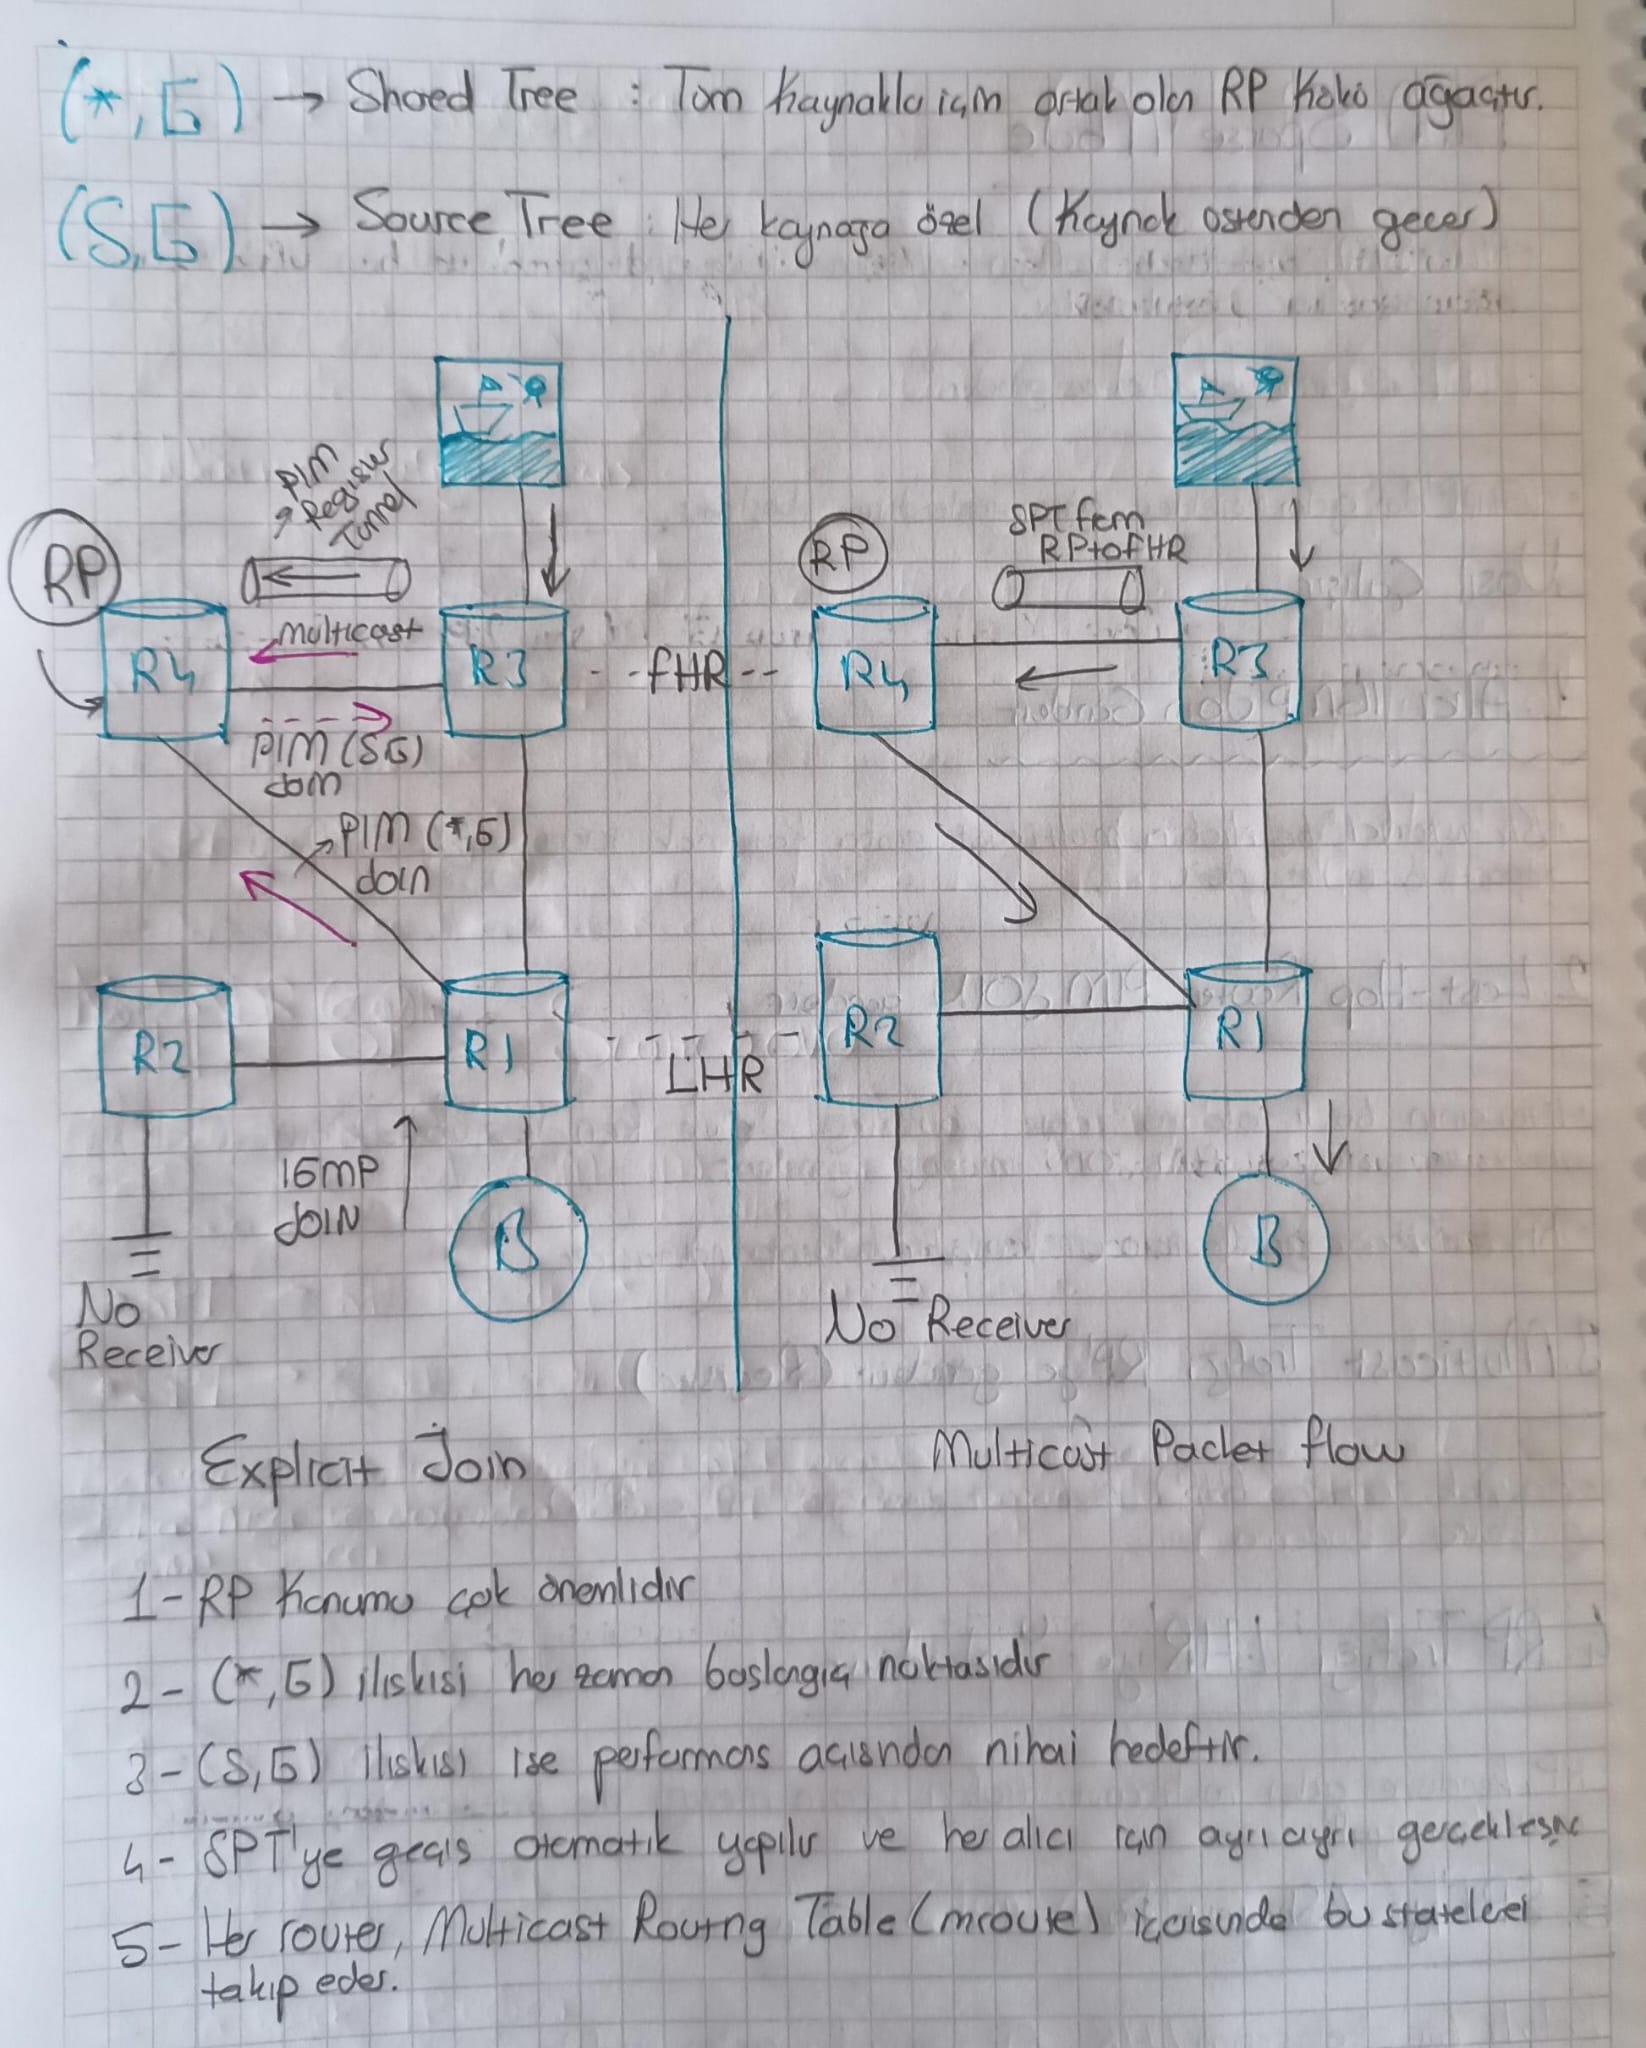 (*,G) → Shared Tree : Tüm kaynakla için ortak olan RP Kökü ağaçtır.
(S,G) → Source Tree : Her kaynağa özel (Kaynak üstünden geçer)
PIM
Register
Tunnel
RP
multicast
R4
R3
PIM (S,G)
Join
PIM (*,G)
Join
R2
R1
IGMP
JOIN
B
No
Receiver
Explicit Join
FHR
LHR
RP
SPT from
RP to FHR
R4
R3
R2
R1
B
No Receiver
Multicast Packet flow
1- RP Konumu çok önemlidir
2- (*,G) ilişkisi her zaman başlangıç noktasıdır
3- (S,G) ilişkisi ise performans açısından nihai hedeftir.
4- SPT'ye geçiş otomatik yapılır ve her alıcı için ayrı ayrı
5- Her router, Multicast Routing Table (mroute) içerisinde bu stateleri
takip eder.